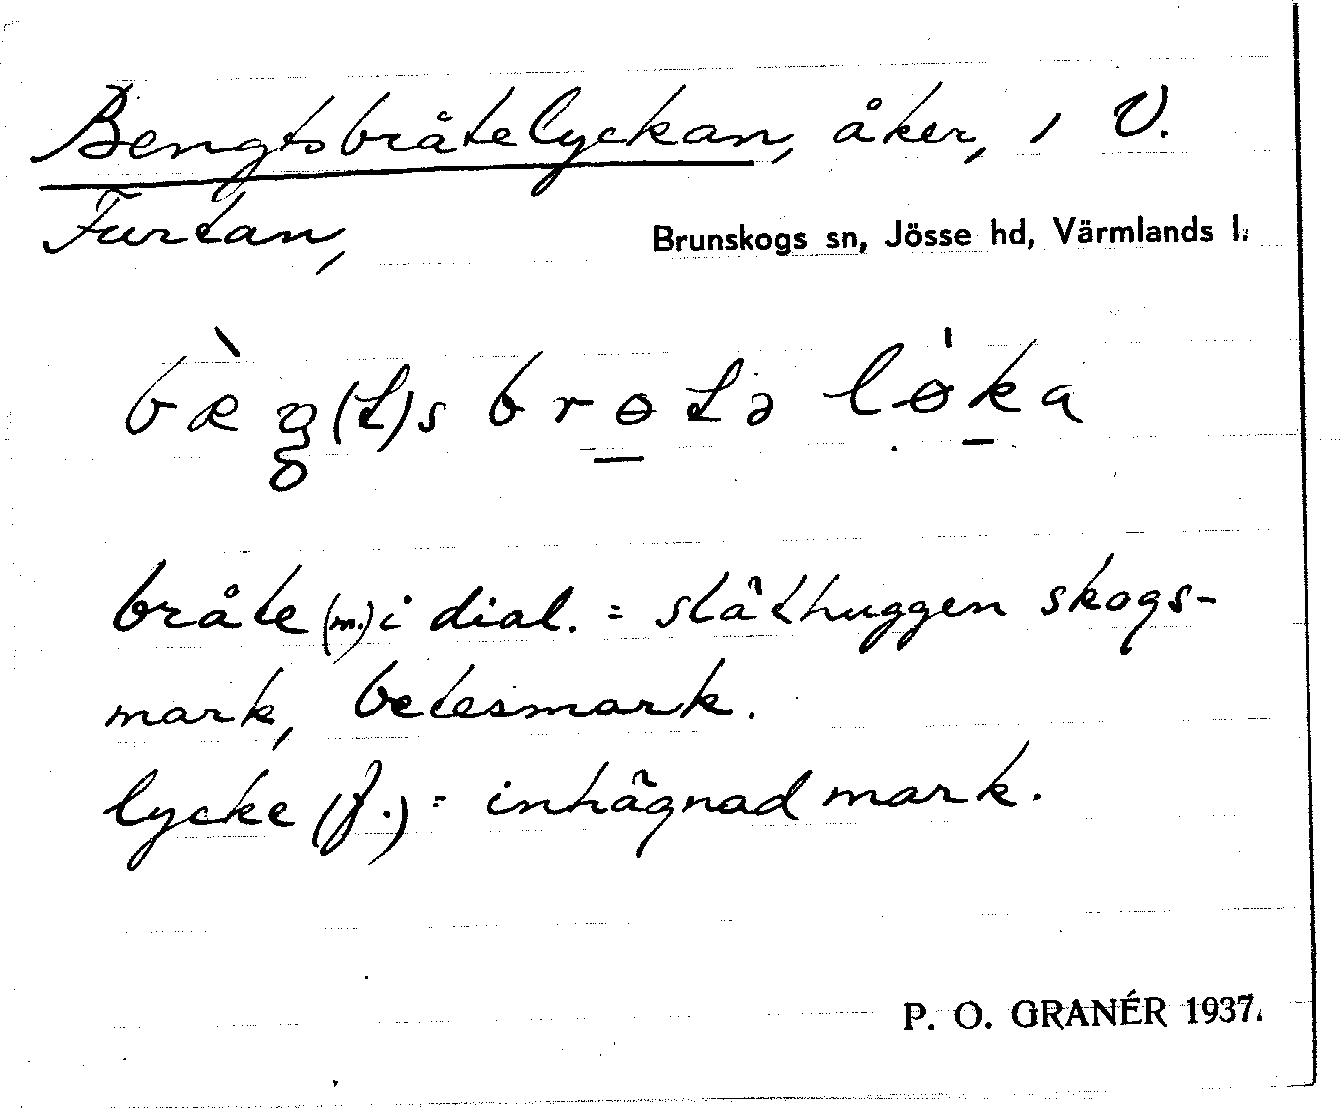 Bengtsbråtelyckan, åker, i V.
Furtan,
Brunskogs sn, Jösse hd, Värmlands l.
bråte (m.) i dial. = slåthuggen skogs-
mark, betesmark.
lycke (f.) = inhägnad mark.
P. O. GRANÉR 1937.